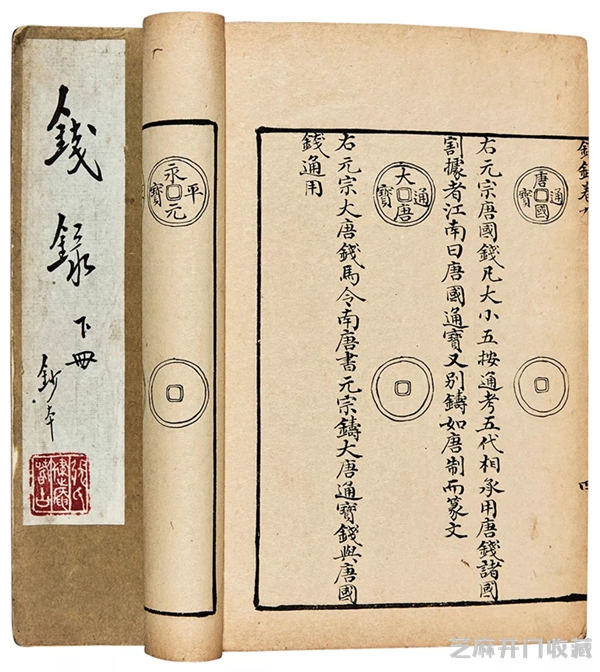 錢錄
下冊
鈔本
唐國通寶
右元宗唐國錢凡大小五按通考五代相承用唐錢諸國
割據者江南曰唐國通寶又別鑄如唐制而篆文
大唐通寶
右元宗大唐錢馬令南唐書元宗鑄大唐通寶錢與唐國
錢通用
永平元寶
芝麻开门收藏